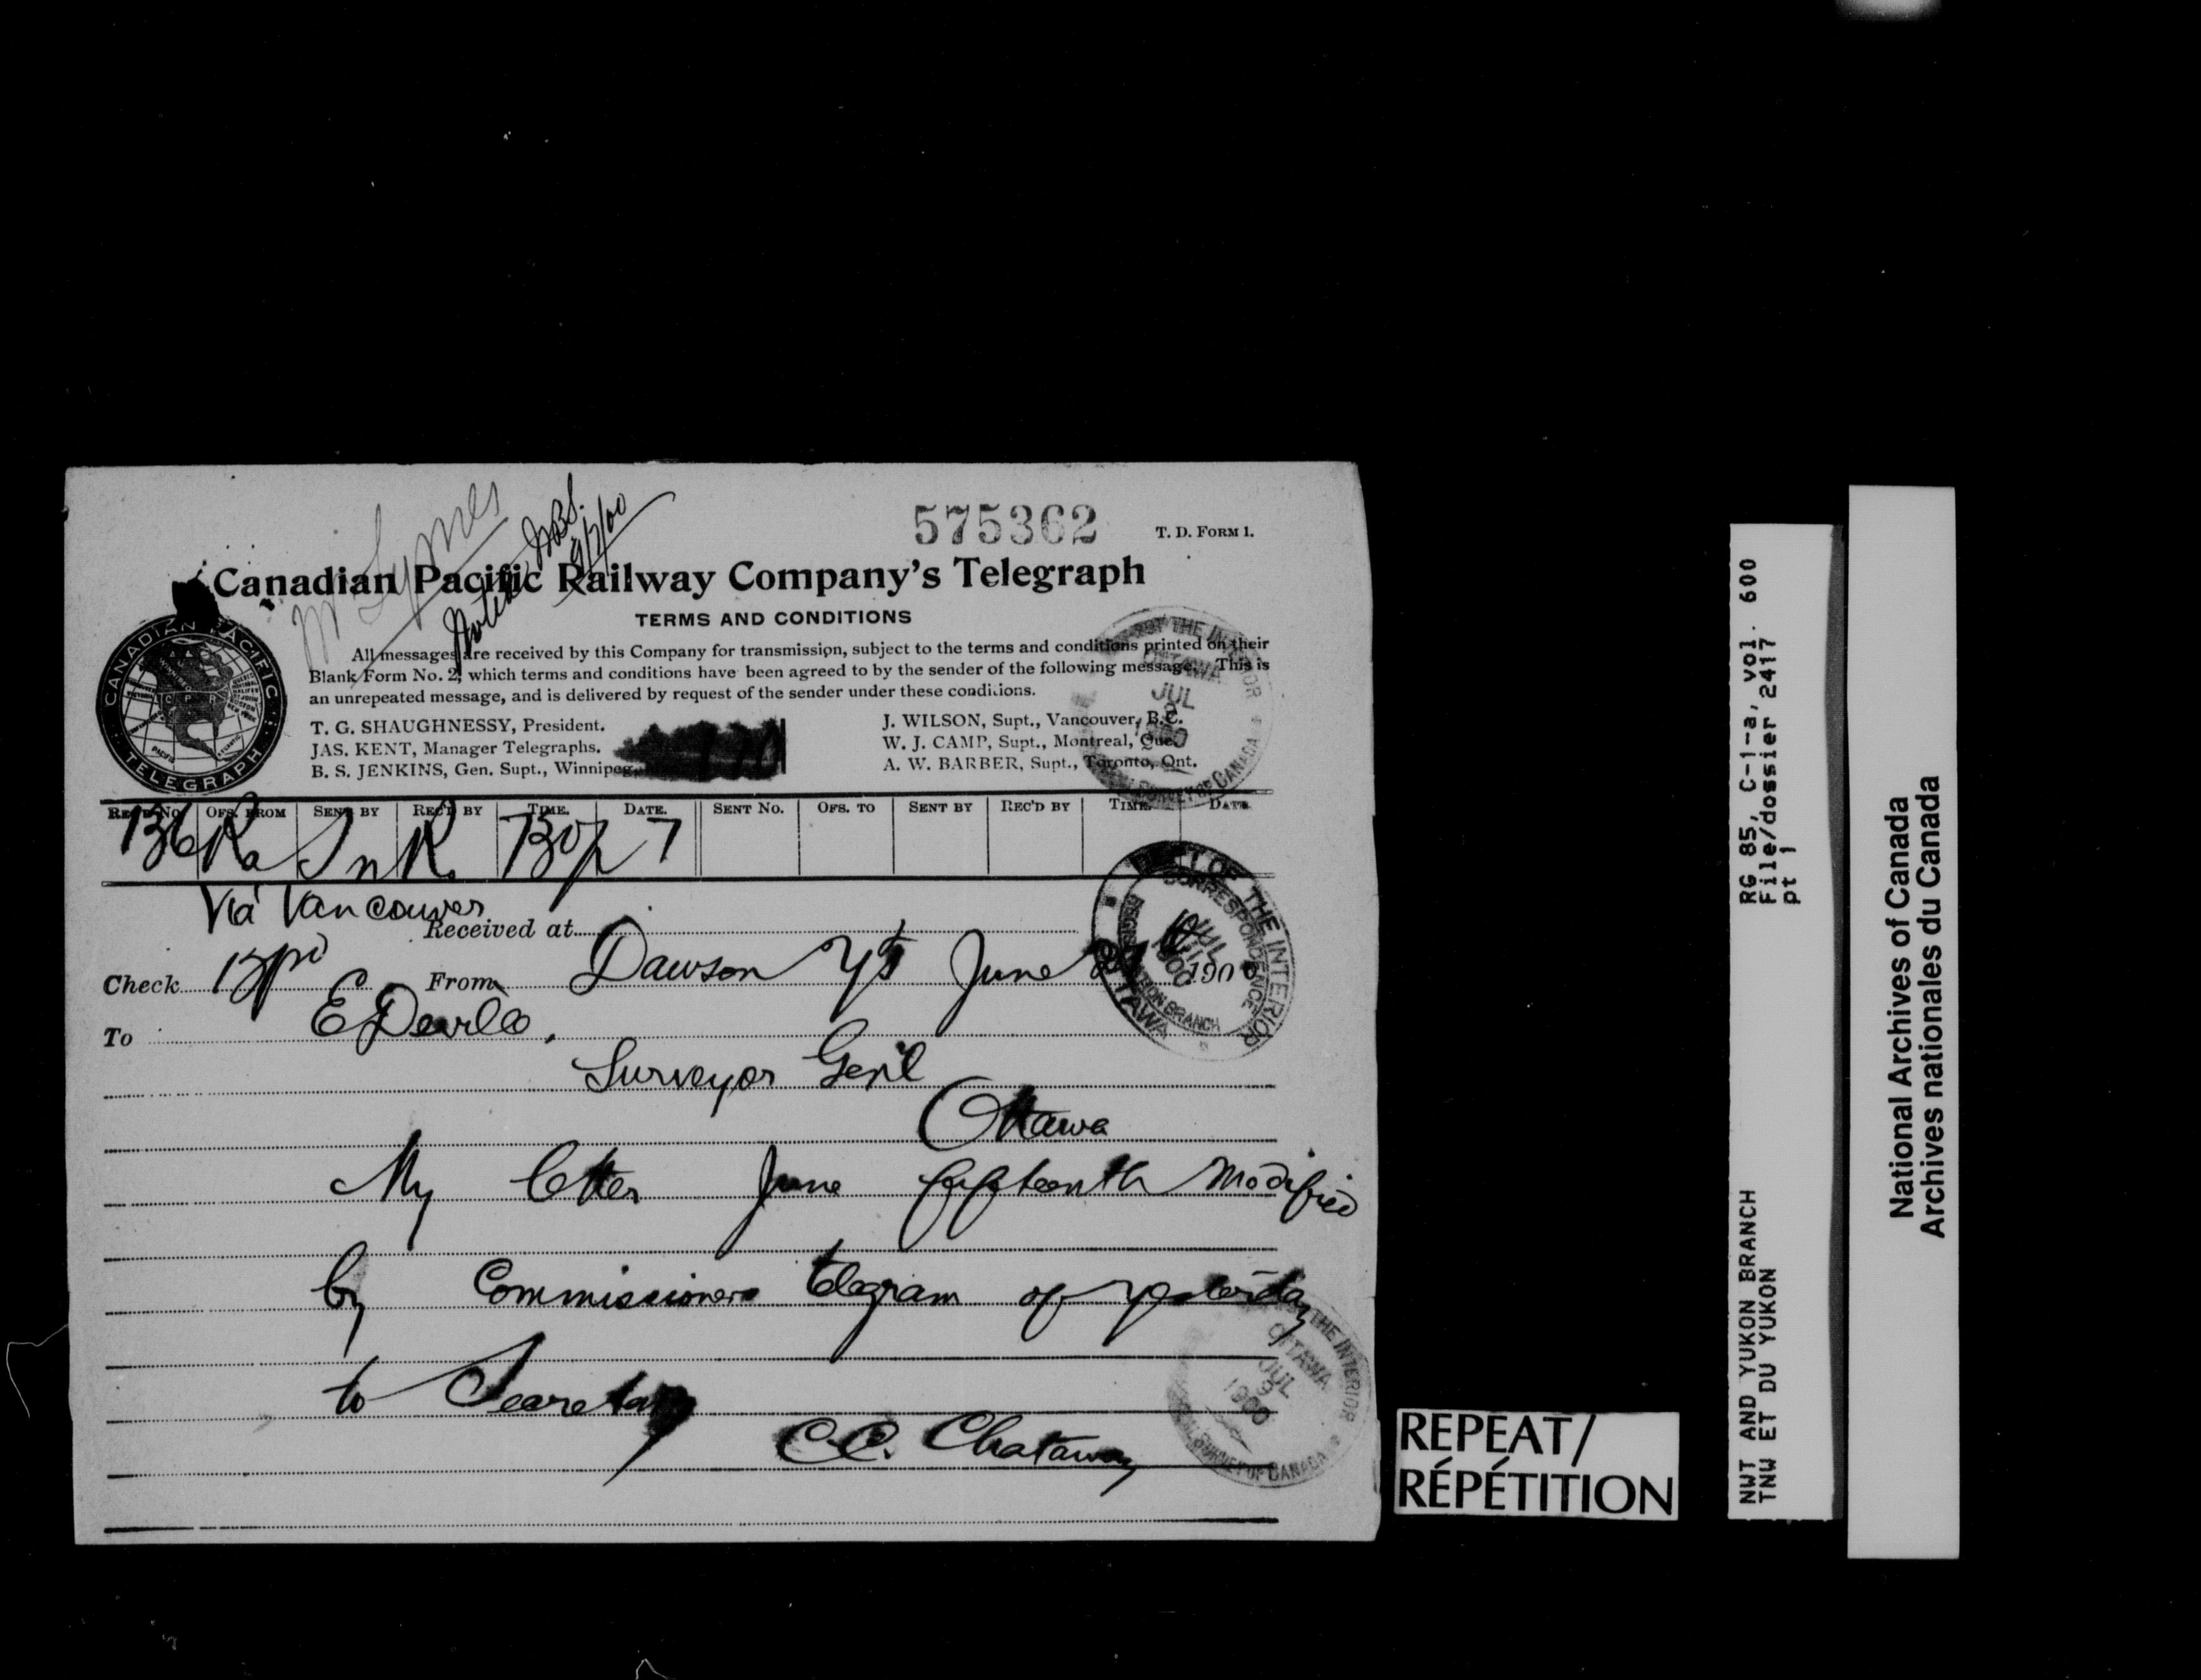 Mr Symes
Noted
9/7/00
575362
T. D. FORM 1.
Canadian Pacific Railway Company's Telegraph
TERMS AND CONDITIONS
All messages are received by this Company for transmission, subject to the terms and conditions printed on their
Blank Form No. 2, which terms and conditions have been agreed to by the sender of the following message. This is
an unrepeated message, and is delivered by request of the sender under these conditions.
CANADIAN PACIFIC
TELEGRAPH
T. G. SHAUGHNESSY, President.
JAS. KENT, Manager Telegraphs.
B. S. JENKINS, Gen. Supt., Winnipeg.
J. WILSON, Supt., Vancouver, B.C.
W. J. CAMP, Supt., Montreal, Que.
A. W. BARBER, Supt., Toronto, Ont.
REC'D NO. OFS. FROM SENT BY REC'D BY TIME. DATE. SENT NO. OFS. TO SENT BY REC'D BY TIME. DATE.
136 Ra Jn R. 730p 7
Via Vancouver
Received at
Check 13pd From Dawson YT June 1900
To E Deville,
Surveyor Genl
Ottawa
My letter June fifteenth modified
by Commissioners telegram of yesterday
to Secretary
C.C. Chataway
DEPT OF THE INTERIOR
CORRESPONDENCE
REGISTRATION BRANCH
OTTAWA
JUL
1900
THE INTERIOR
OTTAWA
JUL
9
1900
SURVEY OF CANADA
REPEAT/
RÉPÉTITION
NWT AND YUKON BRANCH RG 85, C-1-a, vol. 600
TNW ET DU YUKON File/dossier 2417
pt 1
National Archives of Canada
Archives nationales du Canada